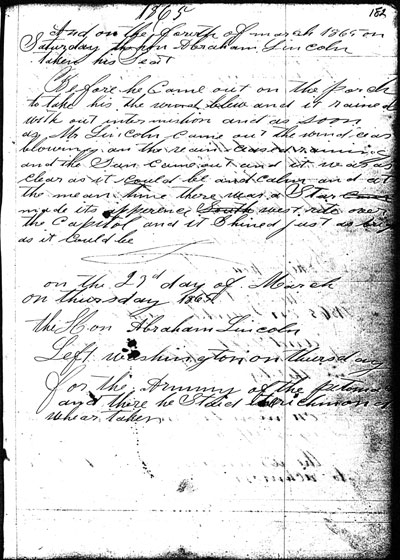 1865
182
And on the fourth of march 1865 on
Saturday Abraham Lincoln
taken his Seat
Before he Came out on the porch
to take his the wind blew and it rained
with out intermishion and as soon
as Mr Lincoln came out the wind ceas
blowing an the rain ceased raining
and the Sun came out and it was as
clear as it could be and calm and at
the mean time there was a Star
made its apperence South west rite over
the Capitol and it Shined just as bri
as it could be
on the 23d day of March
on thursday 1865
the Hon Abraham Lincoln
Left washington on thursday
for the Army of the potomac
and there he Stdid richmond
whar taken